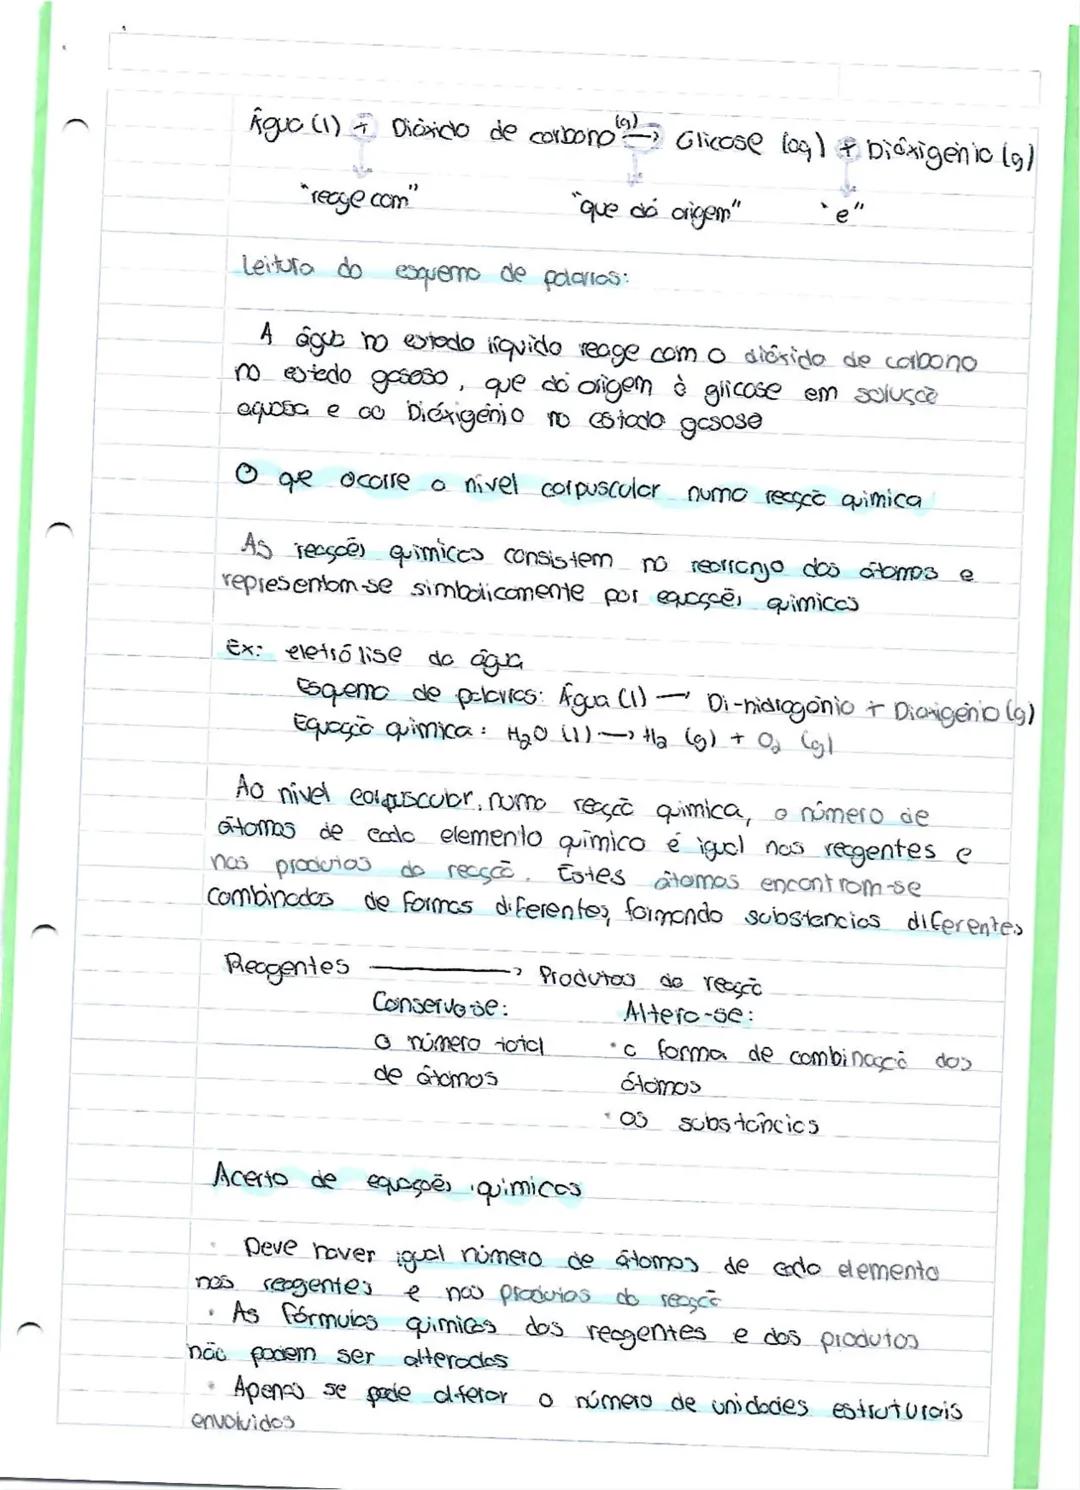 Água (l) + Dióxido de carbono (g) → Glicose (aq) + Dióxigénio (g)
"reage com" "que dá origem" "e"
Leitura do esquema de palavras:
A água no estado líquido reage com o dióxido de carbono
no estado gasoso, que dá origem à glicose em solução
aquosa e ao Dióxigénio no estado gasoso
O que ocorre a nível corpuscular numa reação química
As reações químicas consistem no rearranjo dos átomos e
representam-se simbolicamente por equações químicas
Ex: eletrólise da água
Esquema de palavras: Água (l) → Di-hidrogénio + Dioxigénio (g)
Equação química: H₂O (l) → H₂ (g) + O₂ (g)
Ao nível corpuscular, numa reação química, o número de
átomos de cada elemento químico é igual nos reagentes e
nos produtos da reação. Estes átomos encontram-se
combinados de formas diferentes, formando substancias diferentes
Reagentes → Produtos da reação
Conserva-se: Altera-se:
o número total • a forma de combinação dos
de átomos átomos
• as substâncias
Acerto de equações químicas
• Deve haver igual número de átomos de cada elemento
nos reagentes e nos produtos da reação
• As fórmulas químicas dos reagentes e dos produtos
não podem ser alteradas
• Apenas se pode alterar o número de unidades estruturais
envolvidas